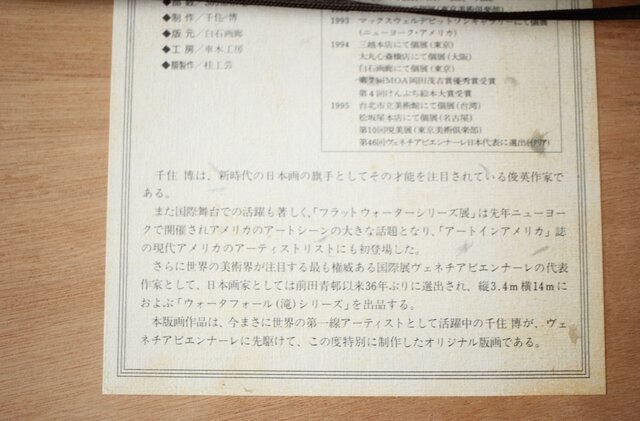 ◆制作／千住 博
◆版元／白石画廊
◆工房／車木工房
◆額製作／桂工芸
1993 マックスウェルデビットソンギャラリーにて個展
(ニューヨーク・アメリカ)
1994 三越本店にて個展(東京)
大丸心斎橋店にて個展(大阪)
白石画廊にて個展(東京)
MOA岡田茂吉賞優秀賞受賞
第4回けんぶち絵本大賞受賞
1995 台北市立美術館にて個展(台湾)
松坂屋本店にて個展(名古屋)
第10回現美展(東京美術倶楽部)
第46回ヴェネチアビエンナーレ日本代表に選出(イタリア)
千住 博は、新時代の日本画の旗手としてその才能を注目されている俊英作家で
ある。
また国際舞台での活躍も著しく、「フラットウォーターシリーズ展」は先年ニューヨー
クで開催されアメリカのアートシーンの大きな話題となり、「アートインアメリカ」誌
の現代アメリカのアーティストリストにも初登場した。
さらに世界の美術界が注目する最も権威ある国際展ヴェネチアビエンナーレの代表
作家として、日本画家としては前田青邨以来36年ぶりに選出され、縦3.4m横14mに
およぶ「ウォータフォール(滝)シリーズ」を出品する。
本版画作品は、今まさに世界の第一線アーティストとして活躍中の千住 博が、ヴェ
ネチアビエンナーレに先駆けて、この度特別に制作したオリジナル版画である。